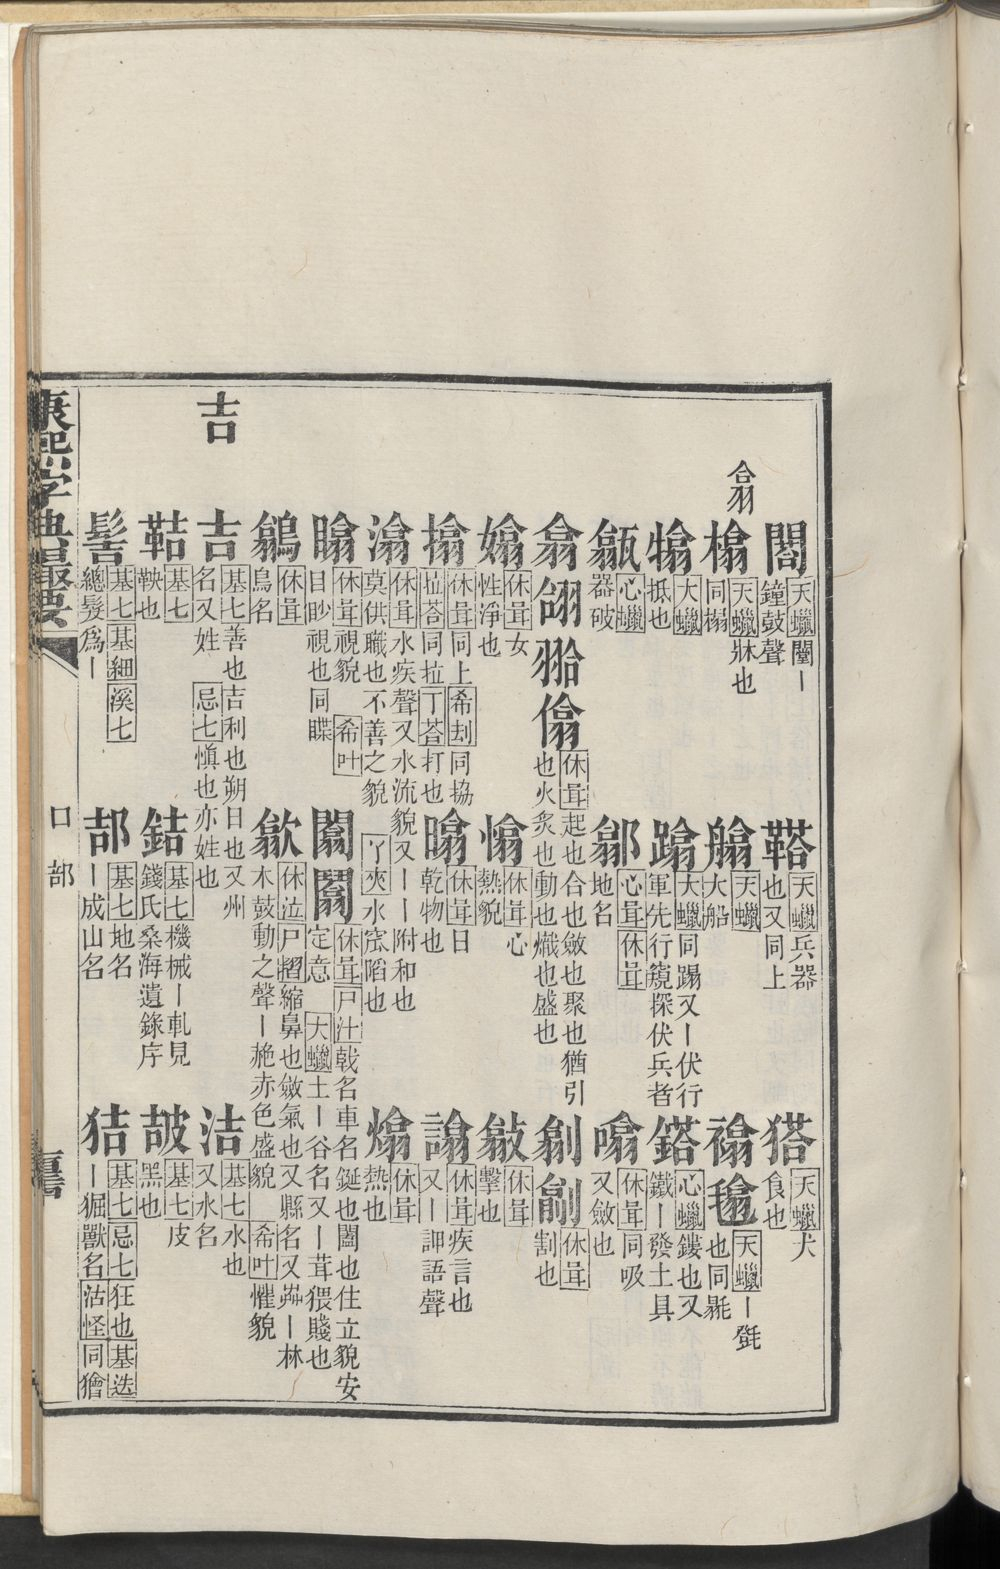 翕
閤 天蠟闔丨鐘鼓聲
鞳 天蠟兵器也又同上
㺉 天蠟犬食也
榻 天蠟牀也同榻
艙 天蠟大船
毾 天蠟丨㲪也同毾
大蠟抵也
蹋 大蠟同蹋又丨伏行軍先行窺探伏兵者
鎝 心蠟鏤也又鐵丨發土具
心蠟器破
鄒 心咠休咠地名
噏 休咠同吸又斂也
翕 翖 休咠起也合也斂也聚也猶引也火炙也動也熾也盛也
休咠割也
嬆 休咠女性淨也
休咠心熱貌
休咠擊也
搚 休咠同上希刦同協拉荅同拉丁荅打也
休咠日乾物也
休咠疾言也又丨訷語聲
潝 休咠水疾聲又水流貌又丨丨附和也莫供職也不善之貌了夾水窊陷也
熻 休咠熱也
休咠視貌希叶目眇視也同瞸
闟 休咠戶汢戟名車名鋋也闔也住立貌安定意大蠟土丨谷名又丨茸猥賤也
休咠鳥名
歙 休泣戶熠縮鼻也斂氣也又縣名又丨林木鼓動之聲丨赩赤色盛貌希叶懼貌
吉
吉 基七善也吉利也朔日也又州名又姓忌七愼也亦姓也
洁 基七水也又水名
鞊 基七鞅也
銡 基七機械丨軋見錢氏桑海遺錄序
基七皮黑也
髻 基七基細溪七總髮爲丨
郆 基七地名丨成山名
狤 基七忌七狂也基迭丨㹶獸名沽怪同獪
康熙字典最要
口部